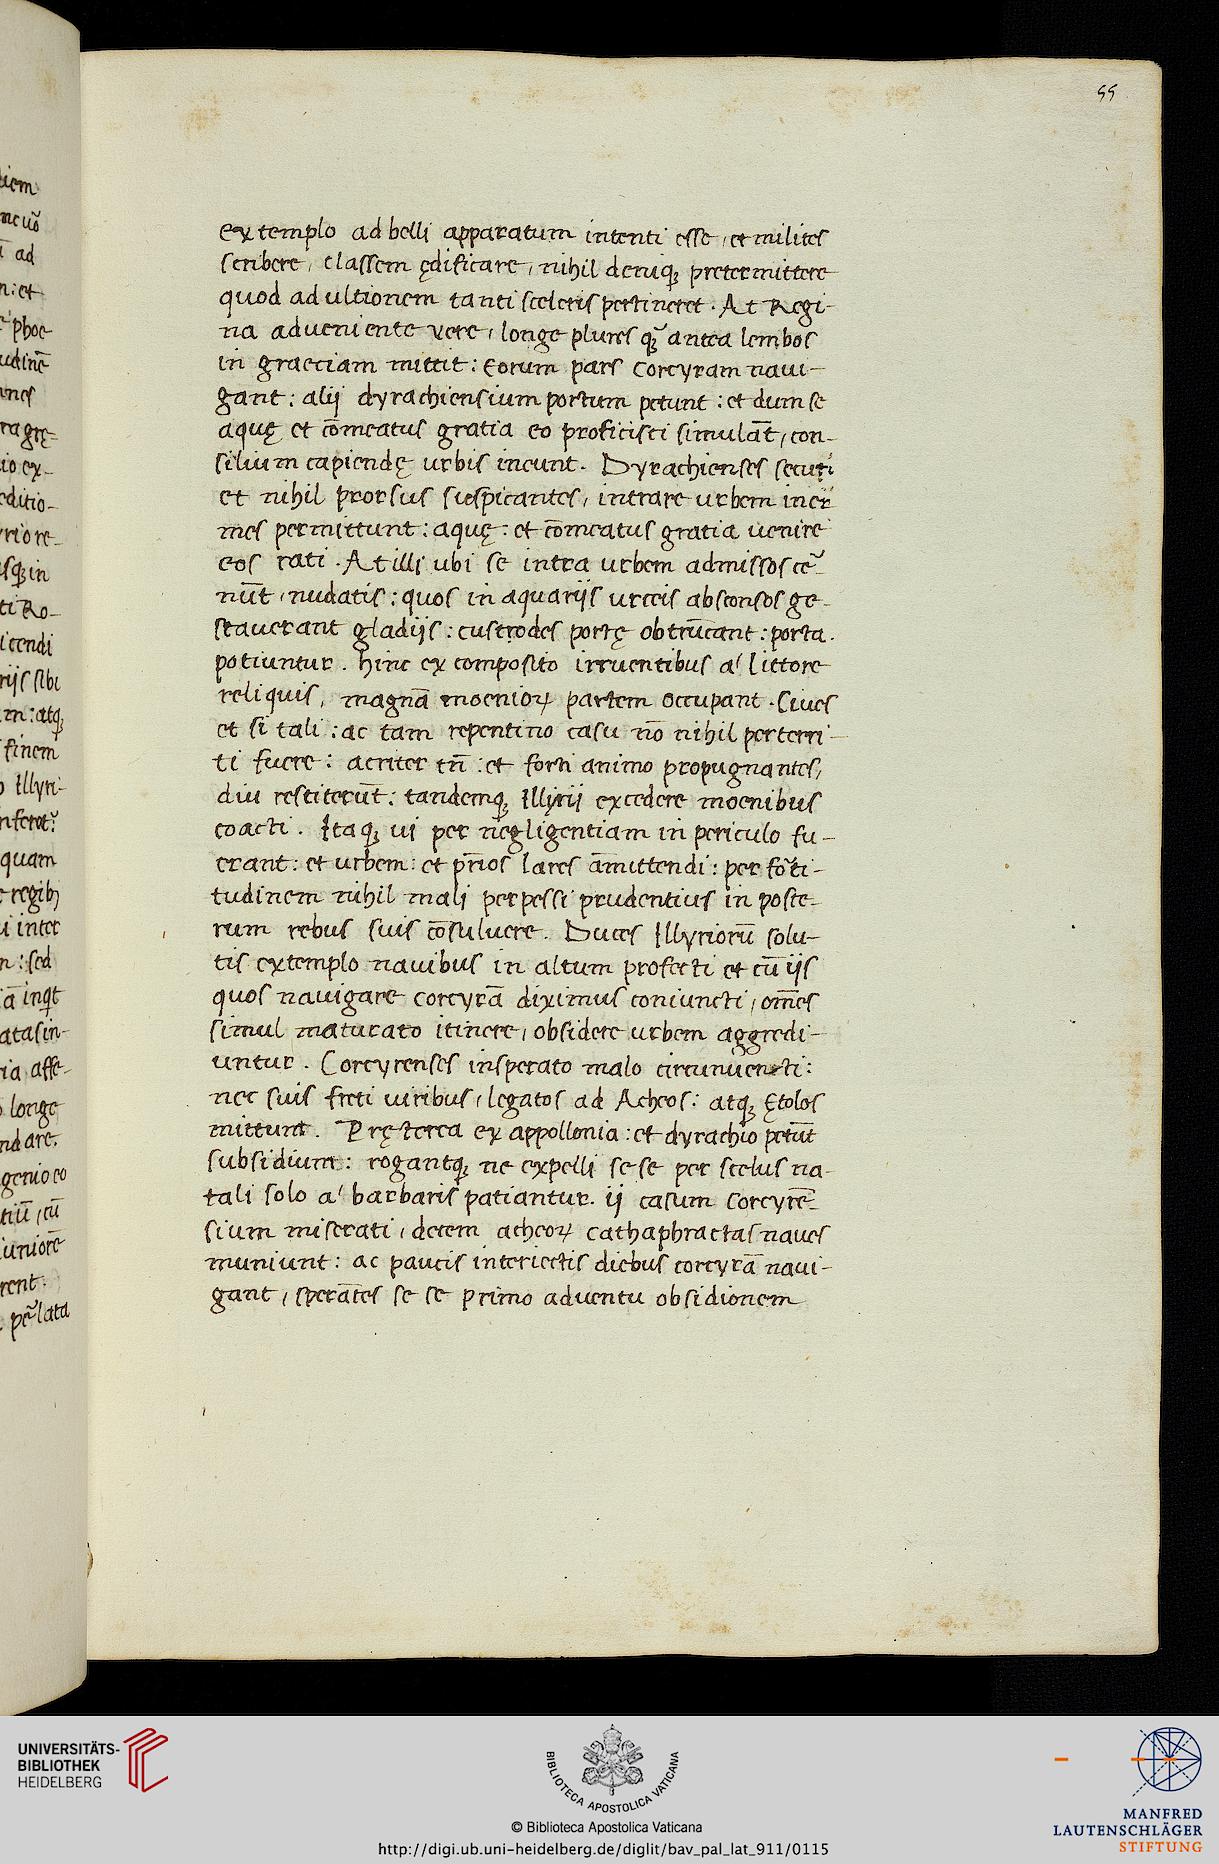 55
extemplo ad belli apparatum intenti esse, et milites
scribere, classem ędificare, nihil deniqꝫ pretermittere
quod ad ultionem tanti sceleris pertineret. At Regi-
na adueniente vere, longe plures qꝫ̃ antea lembos
in graeciam mittit: Eorum pars Corcyram naui-
gant: alij dyrachiensium portum petunt: et dum se
aquę et cōmeatus gratia eo proficisci simulāt, con-
silium capiendę urbis ineunt. Dyrachienses securi
et nihil prorsus suspicantes, intrare urbem iner
mes permittunt: aquę: et cōmeatus gratia uenire
eos rati. At illi ubi se intra urbem admissos cer̃-
nūt, nudatis: quos in aquarijs urceis absconsos ge-
stauerant gladijs: custodes portę obtrūcant: porta.
potiuntur. hinc ex composito irruentibus a' littore
reliquis, magnā moeniorꝝ partem occupant. Ciues
et si tali: ac tam repentino casu nō nihil perterri-
ti fuere: acriter tñ: et forti animo propugnantes,
diu restiterūt: tandemqꝫ Illyrij excedere moenibus
coacti. Itaqꝫ ui per negligentiam in periculo fu-
erant: et urbem: et pr̄ios lares āmittendi: per fōti-
tudinem nihil mali perpessi prudentius in poste-
rum rebus suis cōsuluere. Duces Illyriorū solu-
tis extemplo nauibus in altum profecti et cū ijs
quos nauigare corcyrā diximus coniuncti, om̄es
simul maturato itinere, obsidere urbem aggredi-
untur. Corcyrenses insperato malo circunuenti:
nec suis freti uiribus, legatos ad Acheos: atqꝫ Ętolos
mittunt. Pręterea ex appollonia: et dyrachio petūt
subsidium: rogantqꝫ ne expelli sese per scelus na-
tali solo a' barbaris patiantur. ij casum Corcyrē-
sium miserati, decem acheorꝝ cathaphractas naues
muniunt: ac paucis interiectis diebus corcyrā naui-
gant, sperātes se se primo aduentu obsidionem
UNIVERSITÄTS-
BIBLIOTHEK
HEIDELBERG
BIBLIOTECA APOSTOLICA VATICANA
© Biblioteca Apostolica Vaticana
http://digi.ub.uni-heidelberg.de/diglit/bav_pal_lat_911/0115
MANFRED
LAUTENSCHLÄGER
STIFTUNG